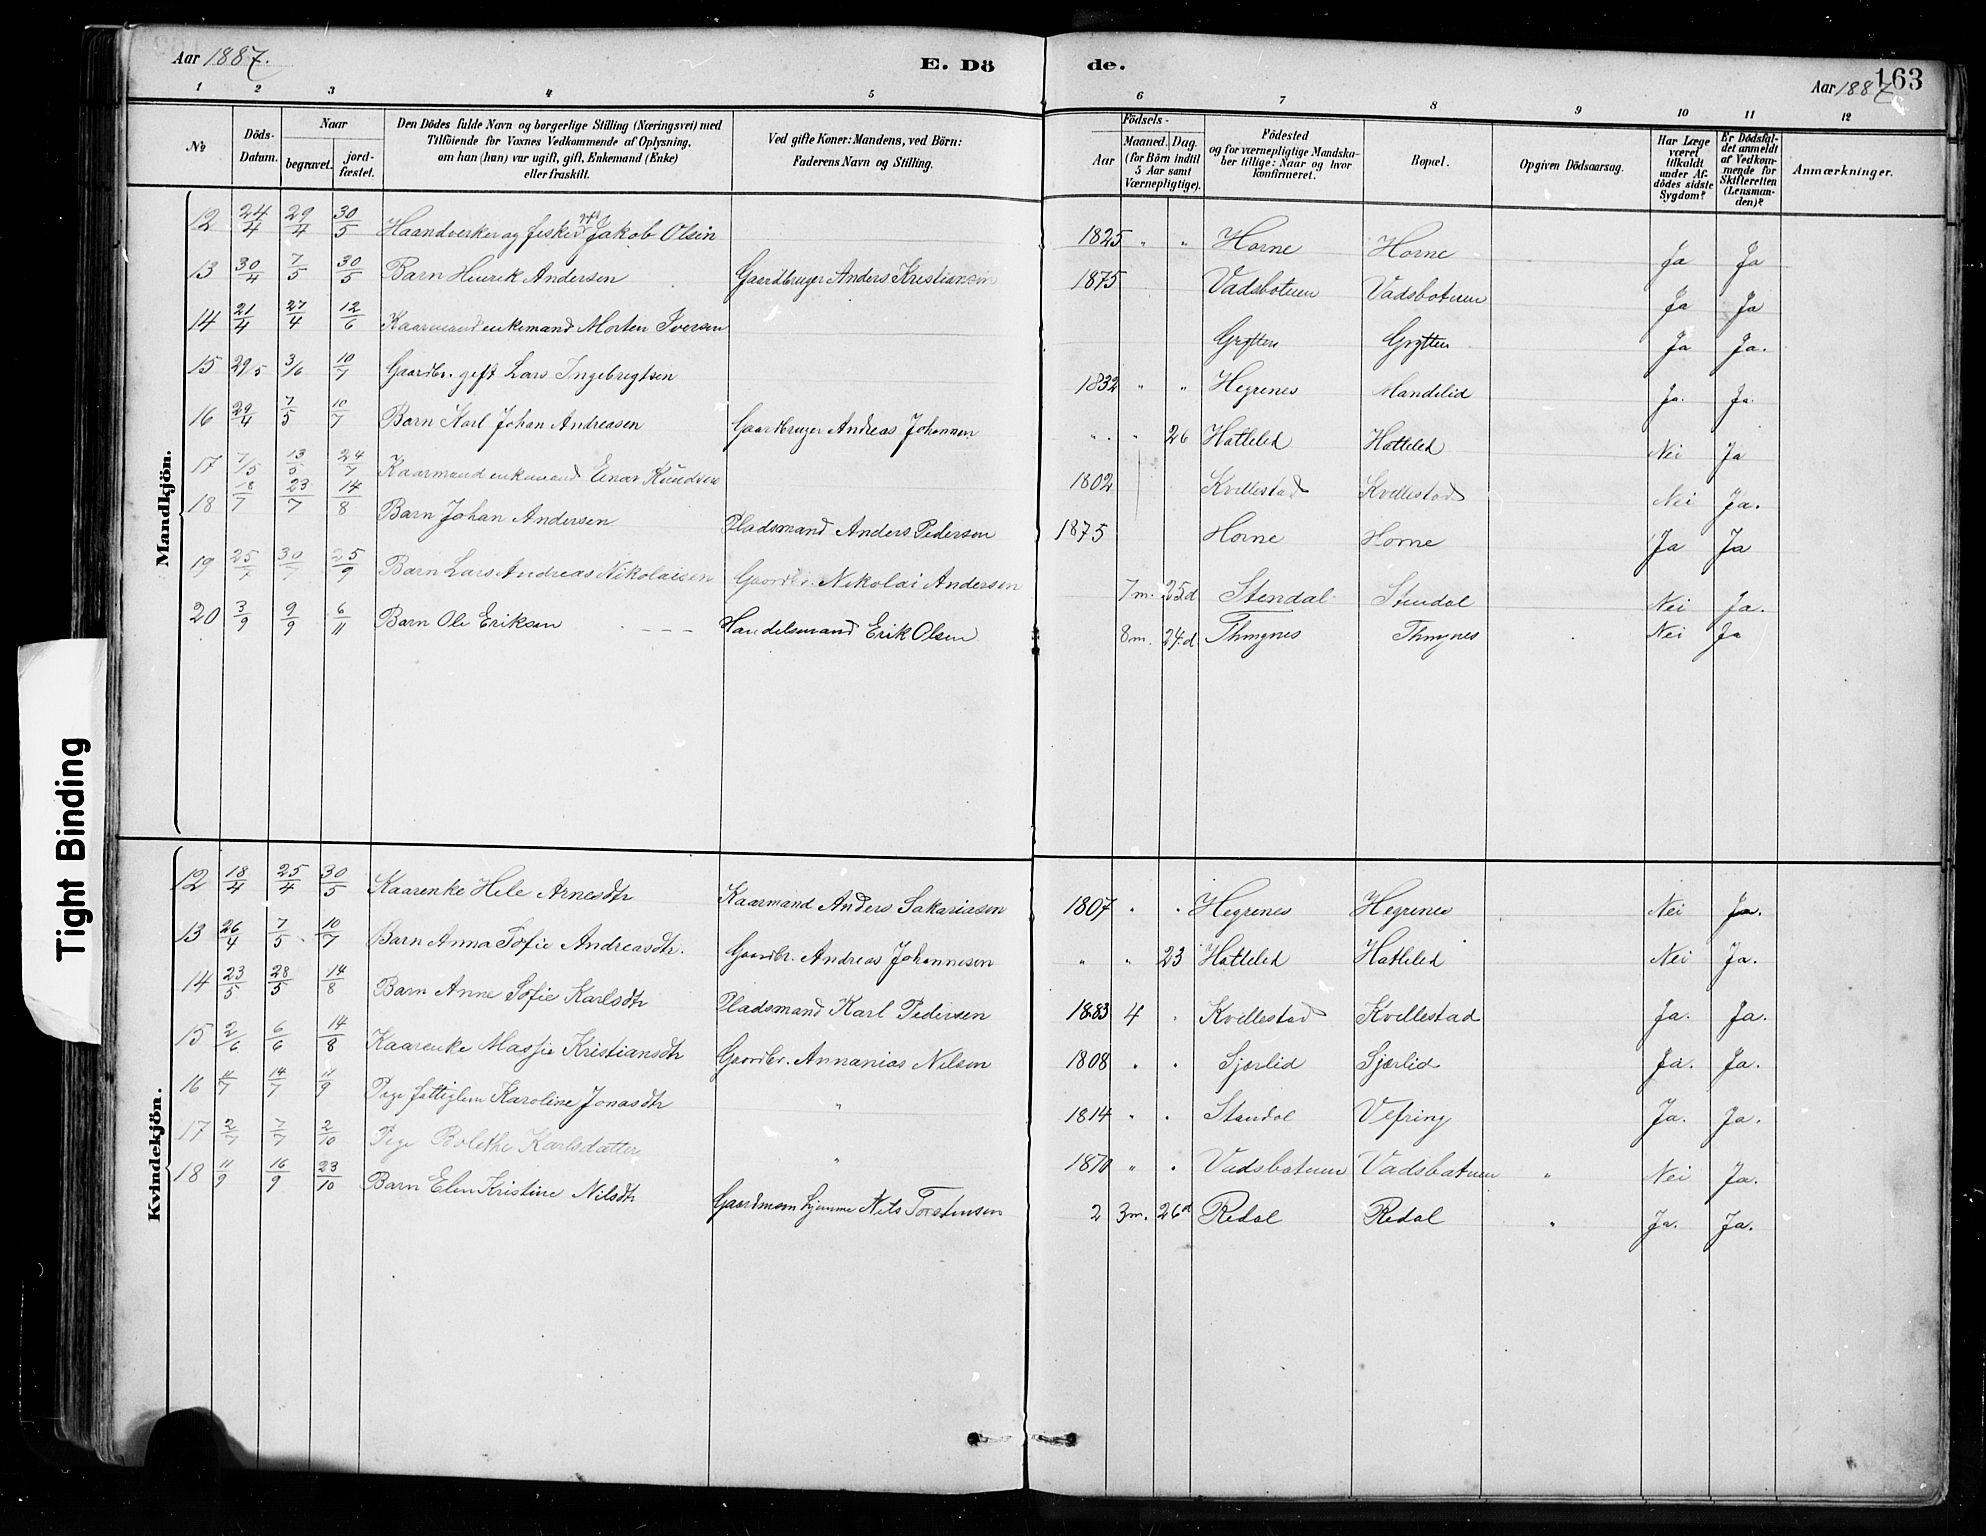 Aar 1887.
E. Dö de.
Aar 1887
163
1 2 3 4 5 6 7 8 9 10 11 12
№
Döds-Datum.
Naar
begravet.
jord-fæstet.
Den Dödes fulde Navn og borgerlige Stilling (Næringsvei) med
Tilföiende for Voxnes Vedkommende af Oplysning,
om han (hun) var ugift, gift, Enkemand (Enke)
eller fraskilt.
Ved gifte Koner: Mandens, ved Börn:
Faderens Navn og Stilling.
Födsels-
Aar
Maaned. Dag.
(for Börn indtil
5 Aar samt
Værnepligtige).
Födested
og for værnepligtige Mandska-
ber tillige: Naar og hvor
konfirmeret.
Bopæl.
Opgiven Dödsaarsag.
Har Læge
været
tilkaldt
under Af-
dödes sidste
Sygdom?
Er Dödsfal-
det anmeldt
af Vedkom-
mende for
Skifteretten
(Lensman-
den)?
Anmærkninger.
Mandkjön.
12 24/4 29/4 30/5 Haandverker og fisker Jakob Olsen 1825 " " Horne Horne Ja Ja
13 30/4 7/5 30/5 Barn Henrik Andersen Gaardbruger Anders Kristiansen 1875 Vadsbotnen Vadsbotnen Ja Ja
14 21/4 27/4 12/6 Kaarmand enkemand Morten Iversen Grytten Grytten Ja Ja.
15 29/5 3/6 10/7 Gaardbr. gift Lars Ingebrigtsen 1832 " " Hegrenes Mandelid Ja. Ja.
16 29/4 7/5 10/7 Barn Karl Johan Andreasen Gaardbruger Andreas Johannsen " " 26 Hatleled Hatleled Nei Ja
17 7/5 13/5 24/7 Kaarmand enkemand Einar Knudsen 1802 Kvillestad Kvillestad Nei Ja.
18 18/7 23/7 14/8 Barn Johan Andersen Pladsmand Anders Pedersen 1875 Horne Horne Ja Ja
19 25/7 30/7 25/9 Barn Lars Andreas Nikolaisen Gaardbr. Nikolai Andersen 7 m. 25 d Stendal Stendal Nei Ja.
20 3/9 9/9 6/11 Barn Ole Eriksen - - - Handelsmand Erik Olsen 8 m. 24. d Thingnes Thingnes Nei Ja
Kvindekjön.
12 18/4 25/4 30/5 Kaarenke Hele Arnesdtr Kaarmand Anders Sakariassen 1807 " " Hegrenes Hegrenes Nei Ja.
13 26/4 7/5 10/7 Barn Anna Sofie Andreasdtr. Gaardbr. Andreas Johannesen " " 23 Hatleled Hatleled Nei Ja.
14 23/5 28/5 14/8 Barn Anne Sofie Karlsdtr Pladsmand Karl Pedersen 1883 4 " Kvillestad Kvillestad Ja. Ja.
15 2/6 6/6 14/8 Kaarenke Kristiansdtr Gaardbr. Annanias Nilsen 1808 " " Sjørlid Sjørlid Ja. Ja.
16 11/7 14/7 11/9 Pige fattiglem Karoline Jonasdtr " 1814 " " Standal Vefring Ja. Ja.
17 2/7 7/7 2/10 Pige Bolethe Karlsdatter " 1870 " " Vadsbotnen Vadsbotnen " Nei Ja.
18 11/9 16/9 23/10 Barn Elen Kristine Nilsdtr Gaardmand hjemme Nils Torstensen 2 3 m. 26 d Redal Redal " Ja. Ja.
Tight Binding